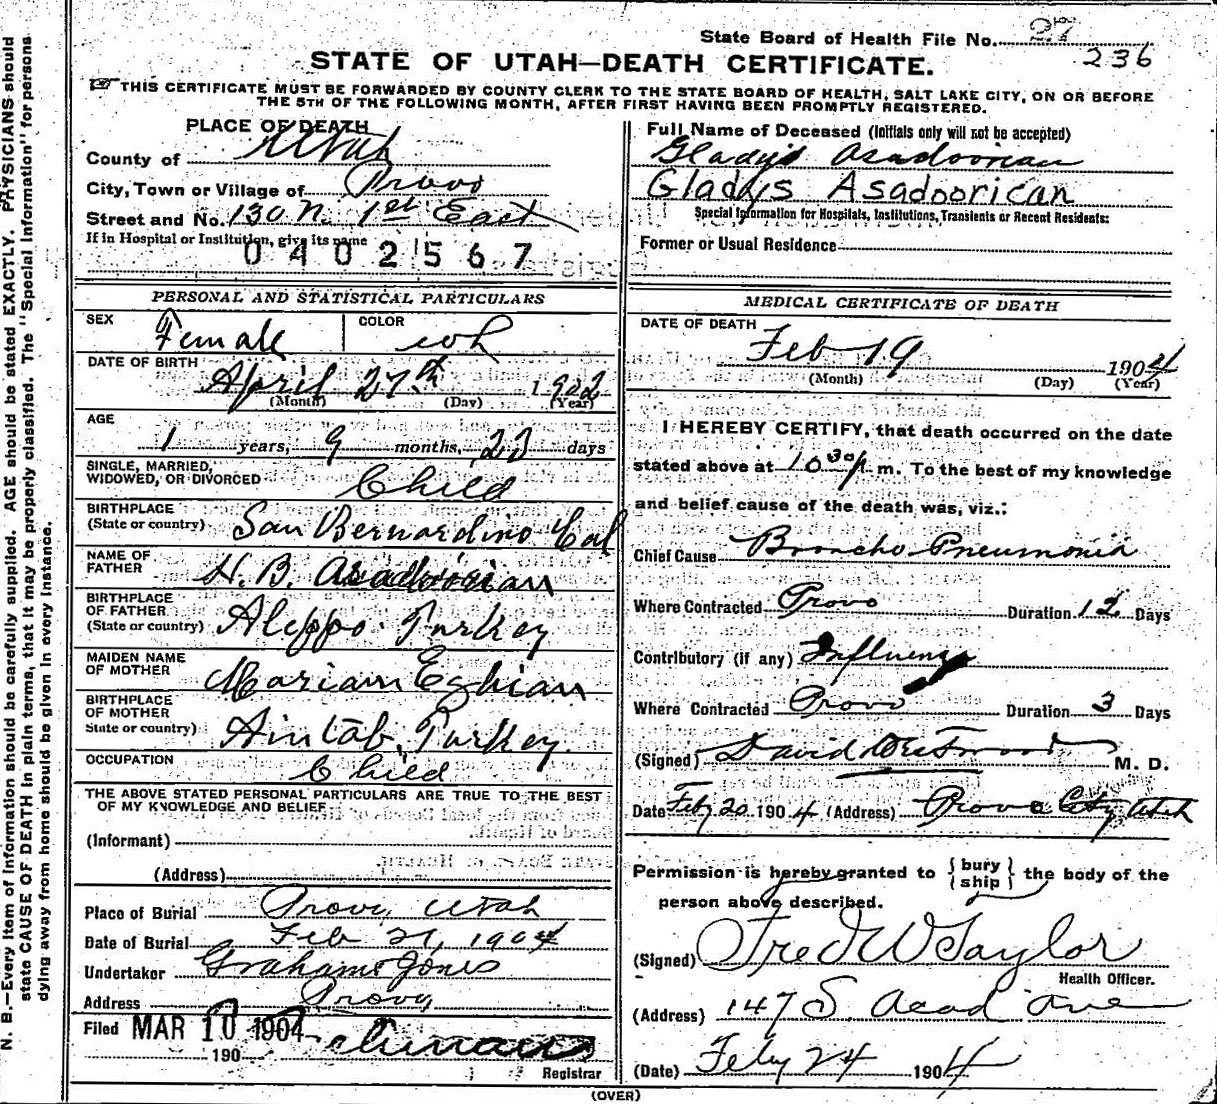 State Board of Health File No. 27
236
STATE OF UTAH—DEATH CERTIFICATE.
THIS CERTIFICATE MUST BE FORWARDED BY COUNTY CLERK TO THE STATE BOARD OF HEALTH, SALT LAKE CITY, ON OR BEFORE
THE 5TH OF THE FOLLOWING MONTH, AFTER FIRST HAVING BEEN PROMPTLY REGISTERED.
PLACE OF DEATH
County of Utah
City, Town or Village of Provo
Street and No. 130 N. 1st East
If in Hospital or Institution, give its name
0402567
Full Name of Deceased (Initials only will not be accepted)
Gladys Asadoorian
Gladys Asadoorican
Special Information for Hospitals, Institutions, Transients or Recent Residents:
Former or Usual Residence
PERSONAL AND STATISTICAL PARTICULARS
SEX Female COLOR wh
DATE OF BIRTH
April 27th 1902
(Month) (Day) (Year)
AGE
1 years, 9 months, 23 days
SINGLE, MARRIED,
WIDOWED, OR DIVORCED Child
BIRTHPLACE
(State or country) San Bernardino Cal
NAME OF
FATHER H. B. Asadoorian
BIRTHPLACE
OF FATHER
(State or country) Aleppo. Turkey
MAIDEN NAME
OF MOTHER Mariam Eghian
BIRTHPLACE
OF MOTHER
State or country) Aintab, Turkey.
OCCUPATION Child
THE ABOVE STATED PERSONAL PARTICULARS ARE TRUE TO THE BEST
OF MY KNOWLEDGE AND BELIEF
(Informant)
(Address)
Place of Burial Provo, Utah
Date of Burial Feb 21, 1904
Undertaker Graham & Jones
Address Provo
Filed MAR 10 1904
190
Registrar
MEDICAL CERTIFICATE OF DEATH
DATE OF DEATH
Feb 19 1904
(Month) (Day) (Year)
I HEREBY CERTIFY, that death occurred on the date
stated above at 10 30 P m. To the best of my knowledge
and belief cause of the death was, viz.:
Chief Cause Broncho Pneumonia
Where Contracted Provo Duration 12 Days
Contributory (if any) Influenza
Where Contracted Provo Duration 3 Days
(Signed) David Westwood M. D.
Date Feby 20 1904 (Address) Provo City Utah
Permission is hereby granted to {bury
ship} the body of the
person above described.
(Signed) Fred W Taylor
Health Officer.
(Address) 147 S. Acad Ave
(Date) Feby 24 1904
(OVER)
N. B.—Every item of information should be carefully supplied. AGE should be stated EXACTLY. PHYSICIANS should
state CAUSE OF DEATH in plain terms, that it may be properly classified. The "Special Information" for persons
dying away from home should be given in every instance.